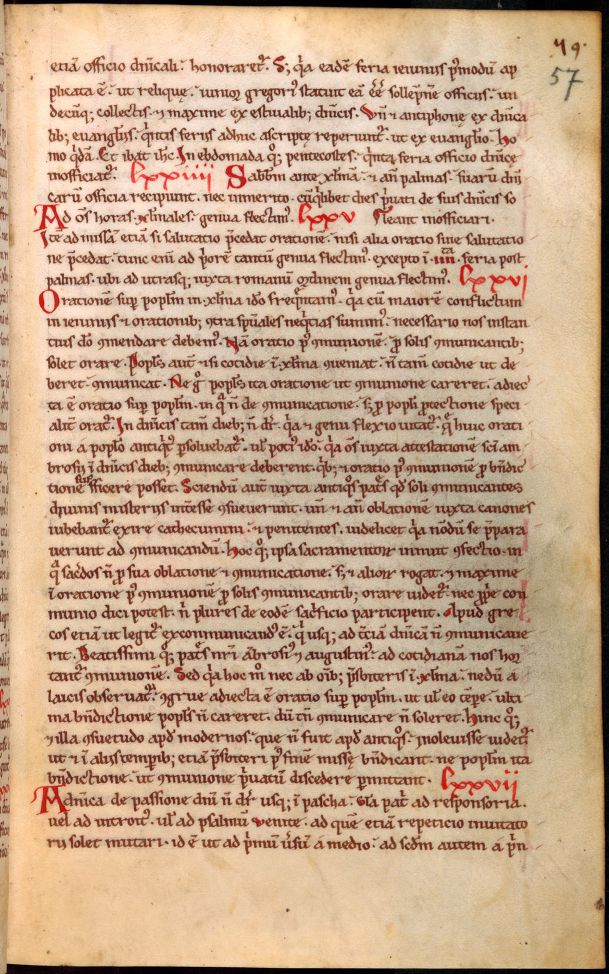 49.
57
etiā officio dn̄icali. honoraret᷑. S; q̄a eadē feria ieiuniis p̄modū ap
plicata ē. ut reliquę. iunior gregori᷒ statuit eā ēē sollēpnē officiis. un
decūq; collectis. & maxime ex estiualib; dn̄icis. Vn̄ & antiphone ex dn̄ica
lib; euangliis. q̄intis feriis adhuc ascriptę reperiunt᷑. ut ex euanglio. ho
mo q̄dā. Et ibat ihc̄. In ebdomada q°q; pentecostes. q̄inta feria officio dn̄ice
inofficiat᷑. lxxiiii Sabbm̄ ante xlmā. & an̄ palmas. suarū dn̄i
carū officia recipiunt. nec inmerito. cū q̄libet dies p̄uati de suis dn̄icis so
Ad oīs horas xlmales. genua flectim᷒. lxxv leant inofficiari.
Ite ad missā etiā si salutatio p̄cedat orationē. nisi alia oratio sine salutatio
ne p̄cedat. tunc enī ad p̄orē tantū genua flectim᷒. excepto ī .iiii.ta feria post
palmas. ubi ad utrasq; iuxta romanū ordinem genua flectim᷒. lxxvi
Orationē sup̄ pop̄lm in xlma ido freq̄ntam᷒. q̄a cū maiorē conflictum
in ieiuniis & orationib; 9tra sp̄uales neq̄tias sumim᷒. necessario nos instan
tius do 9mendare debem᷒. Nā oratio p᷒ 9munionē. p̄ solis 9municantib;
solet orare. Pop̄ls aut̄ & si cotidie ī xlma 9ueniat. n̄ tam̄ cotidie ut de
beret. 9municat. Ne g° pop̄ls ita oratione ut 9munione careret. adiec
ta ē oratio sup̄ pop̄lm. in q̄ n̄ de 9municatione. s; p̄ pop̄li p̄tectione speci
alit᷑ orat᷑. In dn̄icis tam̄ dieb; n̄ dr̄. q̄a & genu flexio uitat᷑. q̄ huic orati
oni a pop̄lo antiq̄t᷒ p̄soluebat᷑. ul̄ poti᷒ ido. q̄a oīs iuxta attestationē sc̄i am
brosii ī dn̄icis dieb; 9municare deberent. q̄b; & oratio p᷒ 9munionē p̄ bn̄dic
tione sufficere posset. Sciendū aut̄ iuxta antiq°s patˢ qd̄ soli 9municantes
diuinis misteriis int̄esse 9sueuerunt. un̄ & an̄ oblationē iuxta canones
iubebant᷑ exire cathecumini. & penitentes. videlicet q̄a nōdū se p̄para
uerunt ad 9municandū. Hoc q°q; ipsa sacramentoꝝ innuit 9fectio. in
q̄ sac̄dos n̄ p̄ sua oblatione & 9municatione. s; & alioꝝ rogat. & maxime
ī oratione p᷒ 9munionē p̄ solis 9municantib; orare uidet᷑. nec p̄prie con
munio dici potest. n̄ plures de eodē sac̄ficio participent. Apud gre
cos etiā ut legit᷑ excommunicand᷒ ē. q̄ usq; ad t̄ciā dn̄icā n̄ 9municaue
rit. Beatissimi q°q; patˢ nr̄i ābrosi᷒ & augustin᷒. ad cotidianā nos hor
tant᷑ 9munionē. Sed q̄a hoc m° nec ab oīb; p̄sbiteris ī xlma. nedū a
laicis obseruat᷑. 9grue adiecta ē oratio sup̄ pop̄lm. ut ul̄ eo tēpe. ulti
ma bn̄dictione pop̄ls n̄ careret. dū tn̄ 9municare n̄ soleret. Hinc q°q;
& illa 9suetudo apd̄ modernos. que n̄ fuit apd̄ antiq°s. inoleuisse uidet᷑
ut & ī aliis temp̄ib; etiā p̄sbiteri p᷒ finē missę bn̄dicant. ne pop̄lm ita
bn̄dictione. ut 9munione p̄uatū discedere p̄mittant. lxxvii
A dn̄ica de passione dn̄i n̄ dr̄ usq; ī pascha. Gl̄a pat᷑. ad responsoria.
uel ad introit᷒. ul̄ ad psalmū venite. ad quē etiā repeticio inuitato
rii solet mutari. id ē ut ad p̄mū u̇sū a medio. ad sc̄dm autem a p̄n